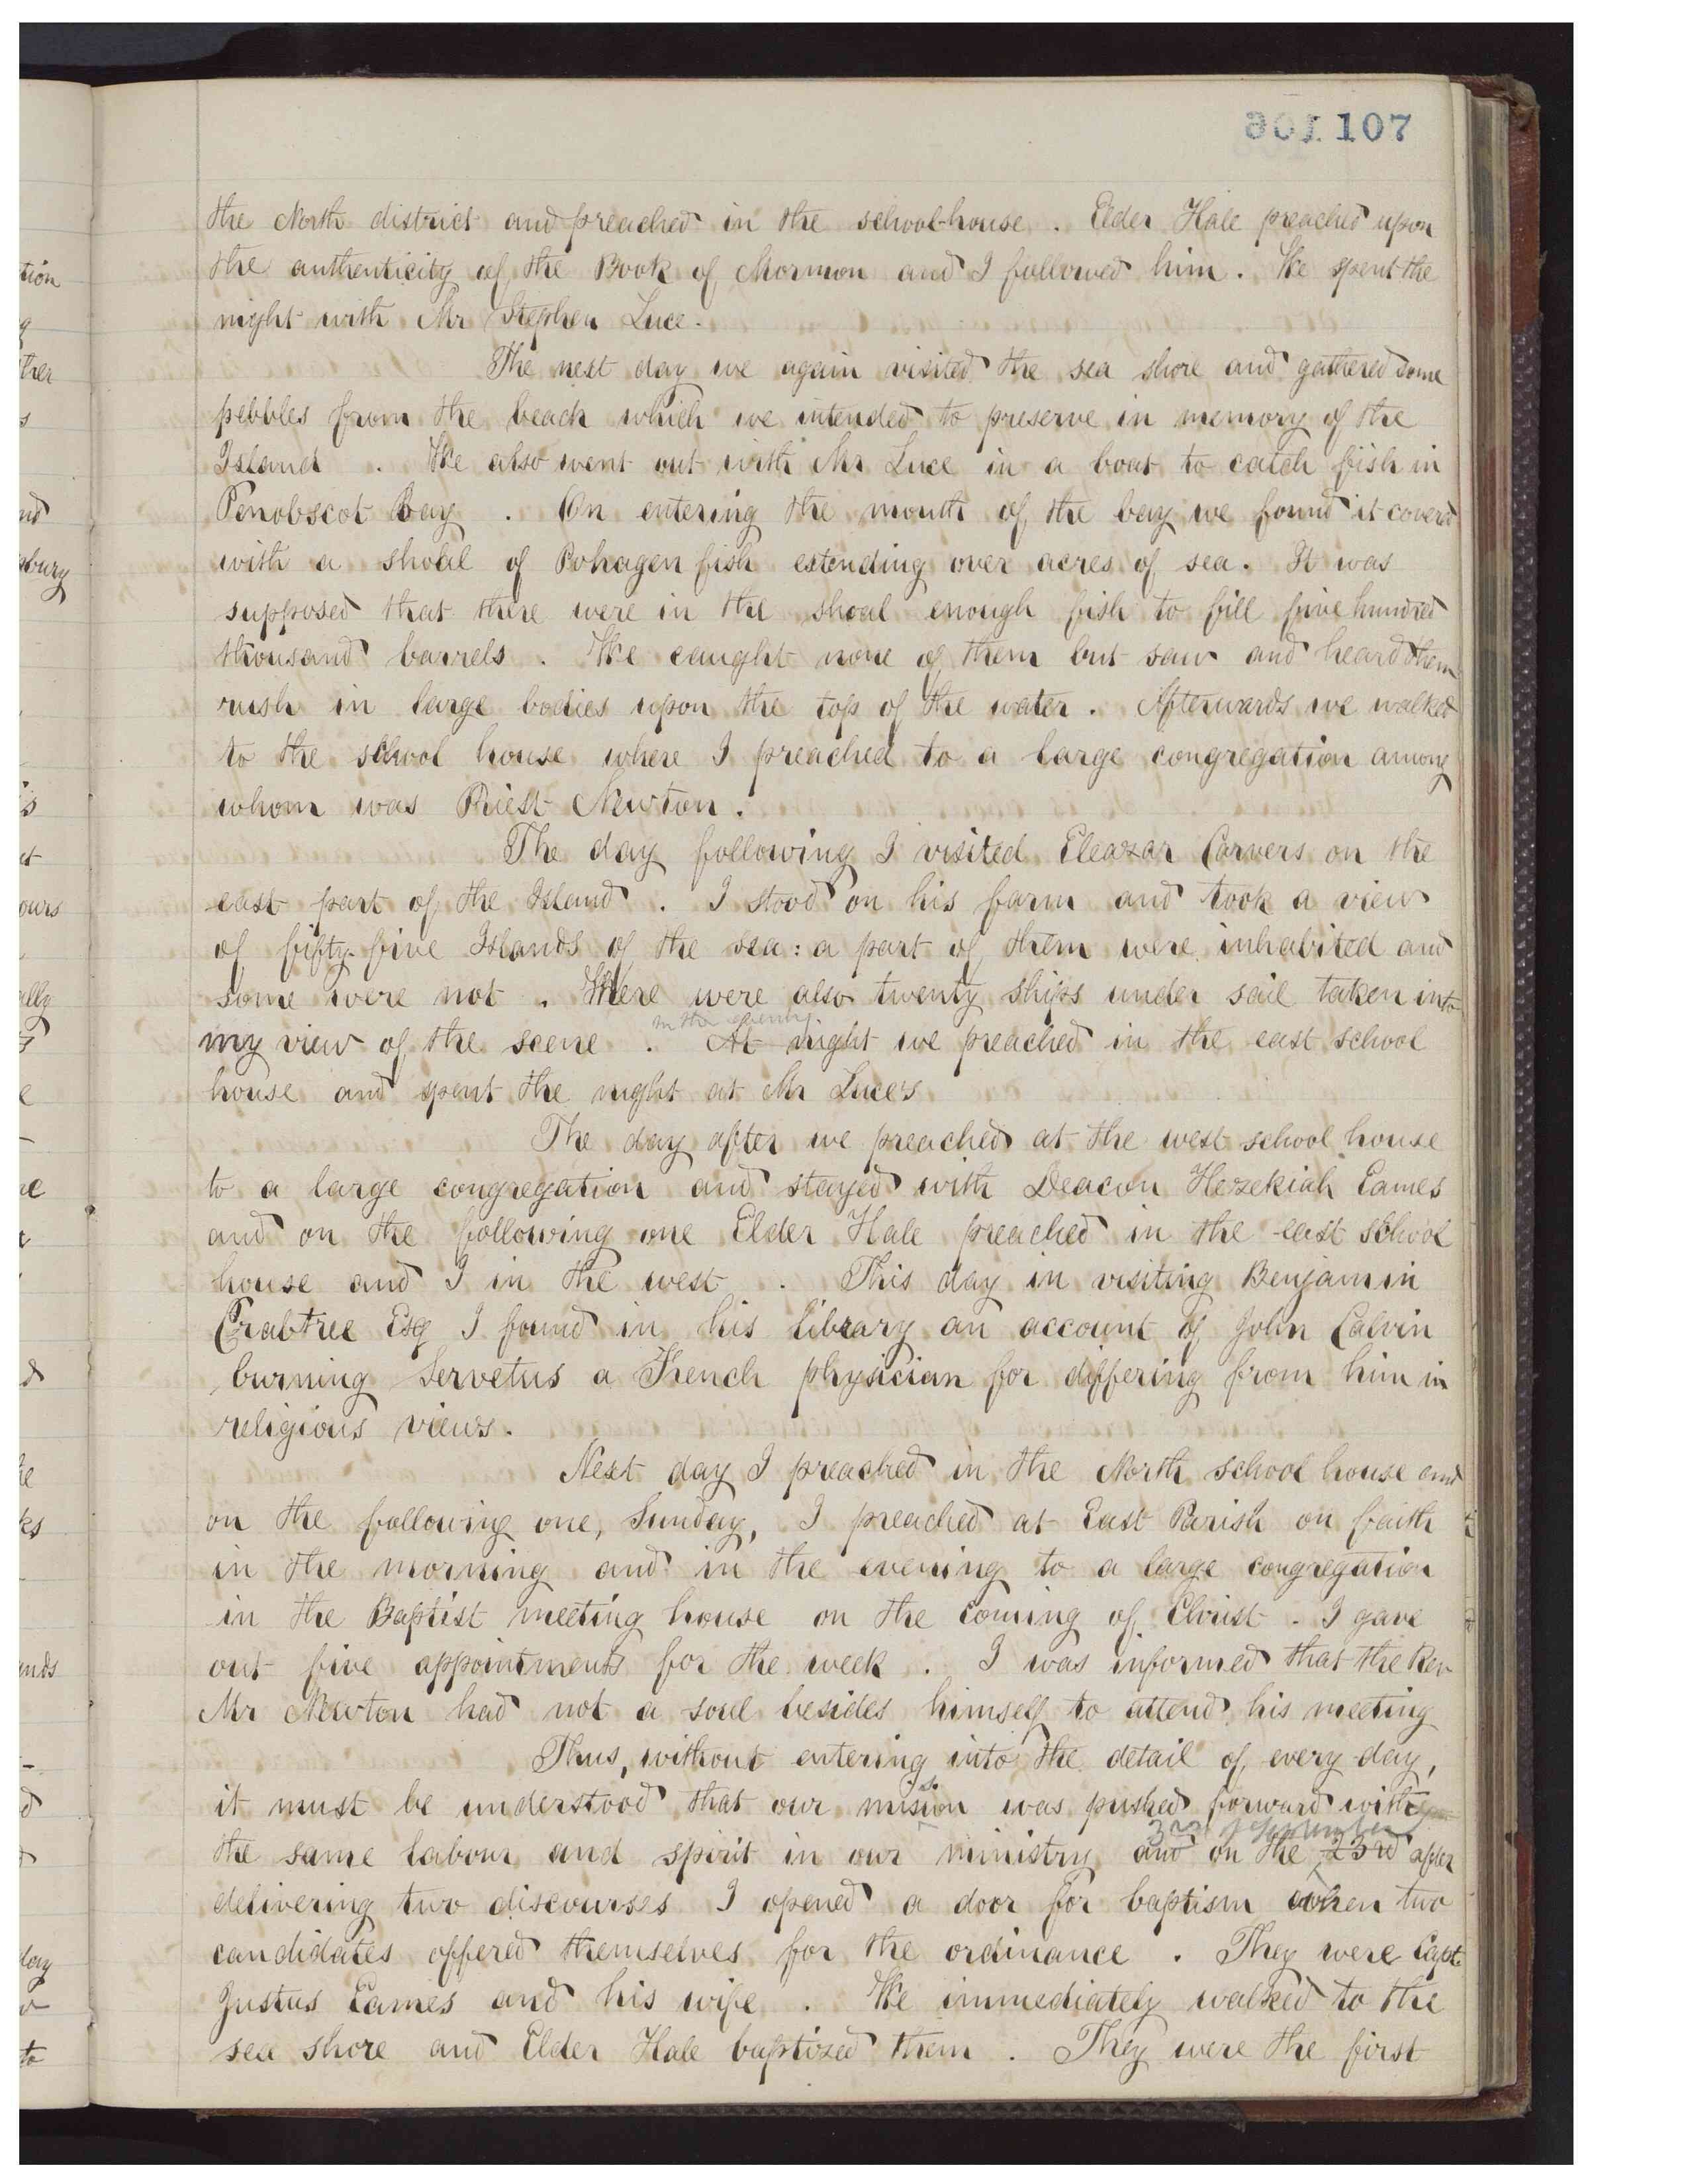 107
the North district and preached in the school-house. Elder Hale preached upon
the authenticity of the Book of Mormon and I followed him. We spent the
night with Mr Stephen Luce.
The next day we again visited the sea shore and gathered some
pebbles from the beach which we intended to preserve in memory of the
Island. We also went out with Mr Luce in a boat to catch fish in
Penobscot Bay. On entering the mouth of the bay we found it coverd
with a shoal of Pohagen fish extending over acres of sea. It was
supposed that there were in the shoal enough fish to fill five hundred
thousand barrels. We caught none of them but saw and heard them
rush in large bodies upon the top of the water. Afterwards we walked
to the school house where I preached to a large congregation among
whom was Priest Newton.
The day following I visited Eleazar Carvers on the
east part of the Island. I stood on his farm and took a view
of fifty-five Islands of the sea: a part of them were inhabited and
some were not. There were also twenty ships under sail taken into
in the evening
my view of the scene. At night we preached in the east school
house and spent the night at Mr Luce's
The day after we preached at the west school house
to a large congregation and stayed with Deacon Hezekiah Eames
and on the following one Elder Hale preached in the east school
house and I in the west. This day in visiting Benjamin
Crabtree Esq I found in his library an account of John Calvin
burning Servetus a French physician for differing from him in
religious views.
Next day I preached in the North school house and
on the following one, Sunday, I preached at East Parish on faith
in the morning and in the evening to a large congregation
in the Baptist meeting house on the coming of Christ. I gave
out five appointments for the week. I was informed that the Rev
Mr Newton had not a soul besides himself to attend his meeting
Thus, without entering into the detail of every day,
it must be understood that our mission was pushed forward with
3rd September
the same labour and spirit in our ministry and on the 23rd after
delivering two discourses I opened a door for baptism when two
candidates offered themselves for the ordinance. They were Capt.
Justus Eames and his wife. We immediately walked to the
sea shore and Elder Hale baptized them. They were the first